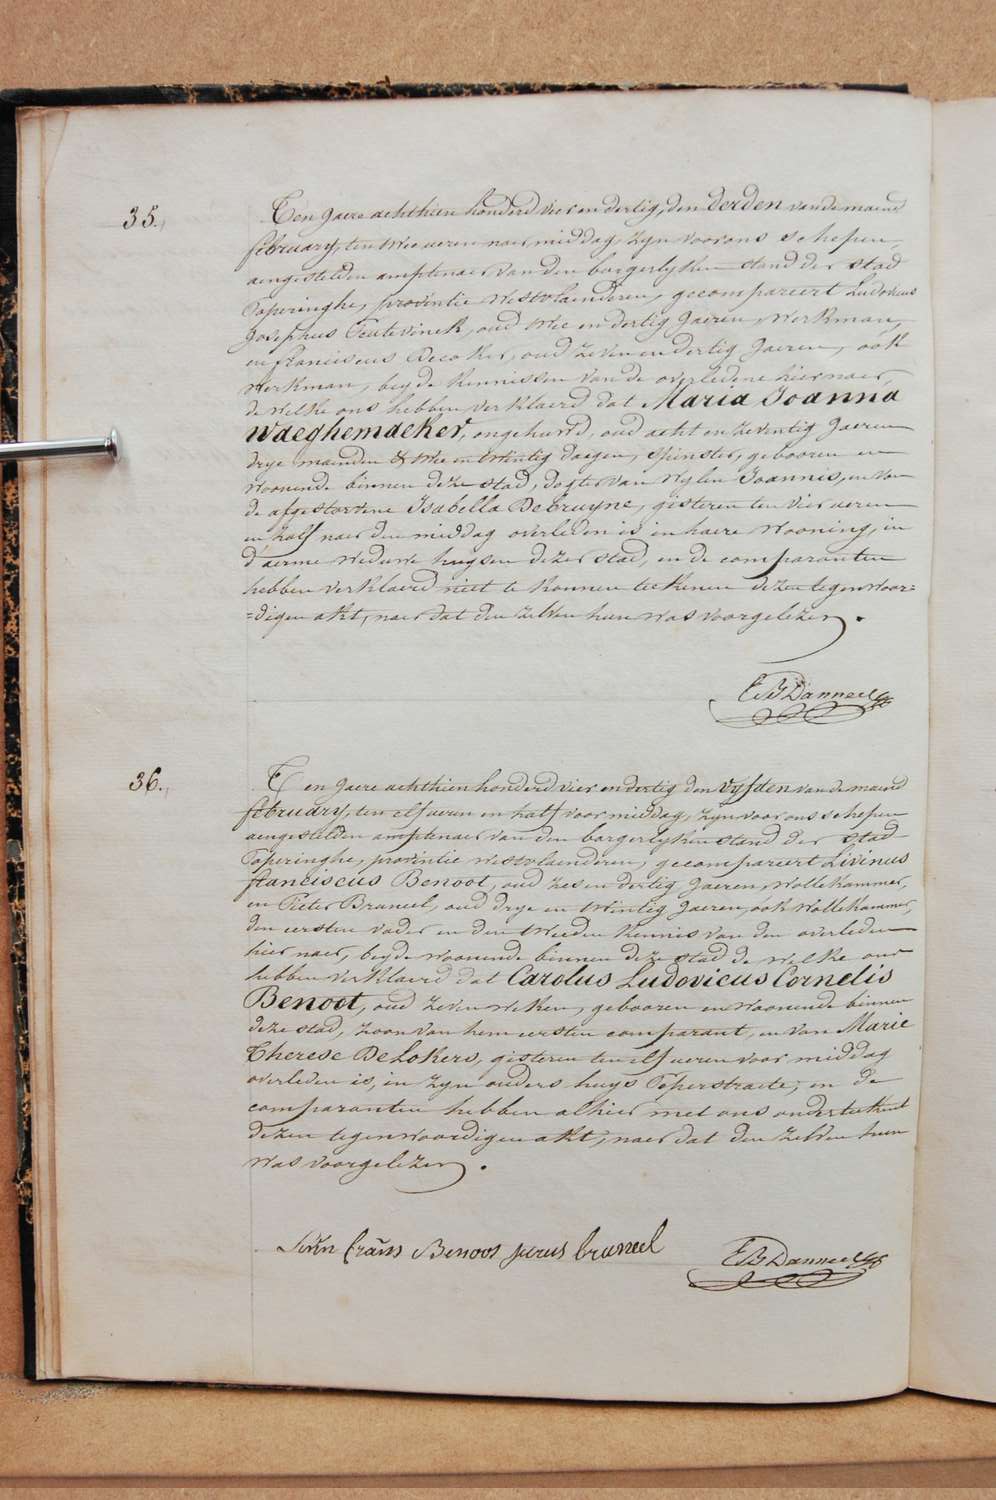 35.
Ten Jaere achthien honderd vier en dertig, den derden van de maend
february, ten twee ueren naer middag, zyn voor ons schepen,
aengestelden amptenaer van den borgerlyken stand der stad
Poperinghe, provintie westvlaenderen, gecompareert Ludovicus
Josephus oud twee en dertig Jaeren, werkman,
en franciscus Decoker, oud zeven en dertig Jaeren, ook
werkman, beyde kennissen van de overledene hier naer,
de welke ons hebben verklaerd dat Maria Joanna
Waeghemaeker, ongehuwd, oud acht en zeventig Jaeren
drye maenden & twee en twintig daegen, spinster, gebooren en
woonende binnen deze stad, dogter van wylen Joannis, en van
de afgestorvene Isabella Debruyne, gisteren ten vier ueren
en half naer den middag overleden is in haere wooning, in
d'aerme weduwe huysen dezer stad, en de comparanten
hebben verklaerd niet te konnen teekenen dezen tegenwoor=
=digen akt, naer dat den zelven hun was voorgelezen.
E B Danneel
36.
Ten Jaere achthien honderd vier en dertig den vyfden van de maend
february, ten elf ueren en half voor middag, zyn voor ons schepen
aengestelden amptenaer van den borgerlyken stand der stad
Poperinghe, provintie westvlaenderen, gecompareert Livinus
franciscus Benoot, oud zes en dertig Jaeren, wollekammer,
en Pieter Braneel, oud drye en twintig Jaeren, ook wollekammer,
den eersten vader en den tweeden kennis van den overleden
hier naer, beyde woonende binnen deze stad de welke ons
hebben verklaerd dat Carolus Ludovicus Cornelis
Benoot, oud zeven weken, gebooren en woonende binnen
deze stad, zoon van hem eersten comparant, en van Marie
Therese De Lokers, gisteren ten elf ueren voor middag
overleden is, in zyn ouders huys Peperstraete; en de
comparanten hebben alhier met ons onderteekent
dezen tegenwoordigen akt, naer dat den zelven hun
was voorgelezen.
Benoot braneel
E B Danneel